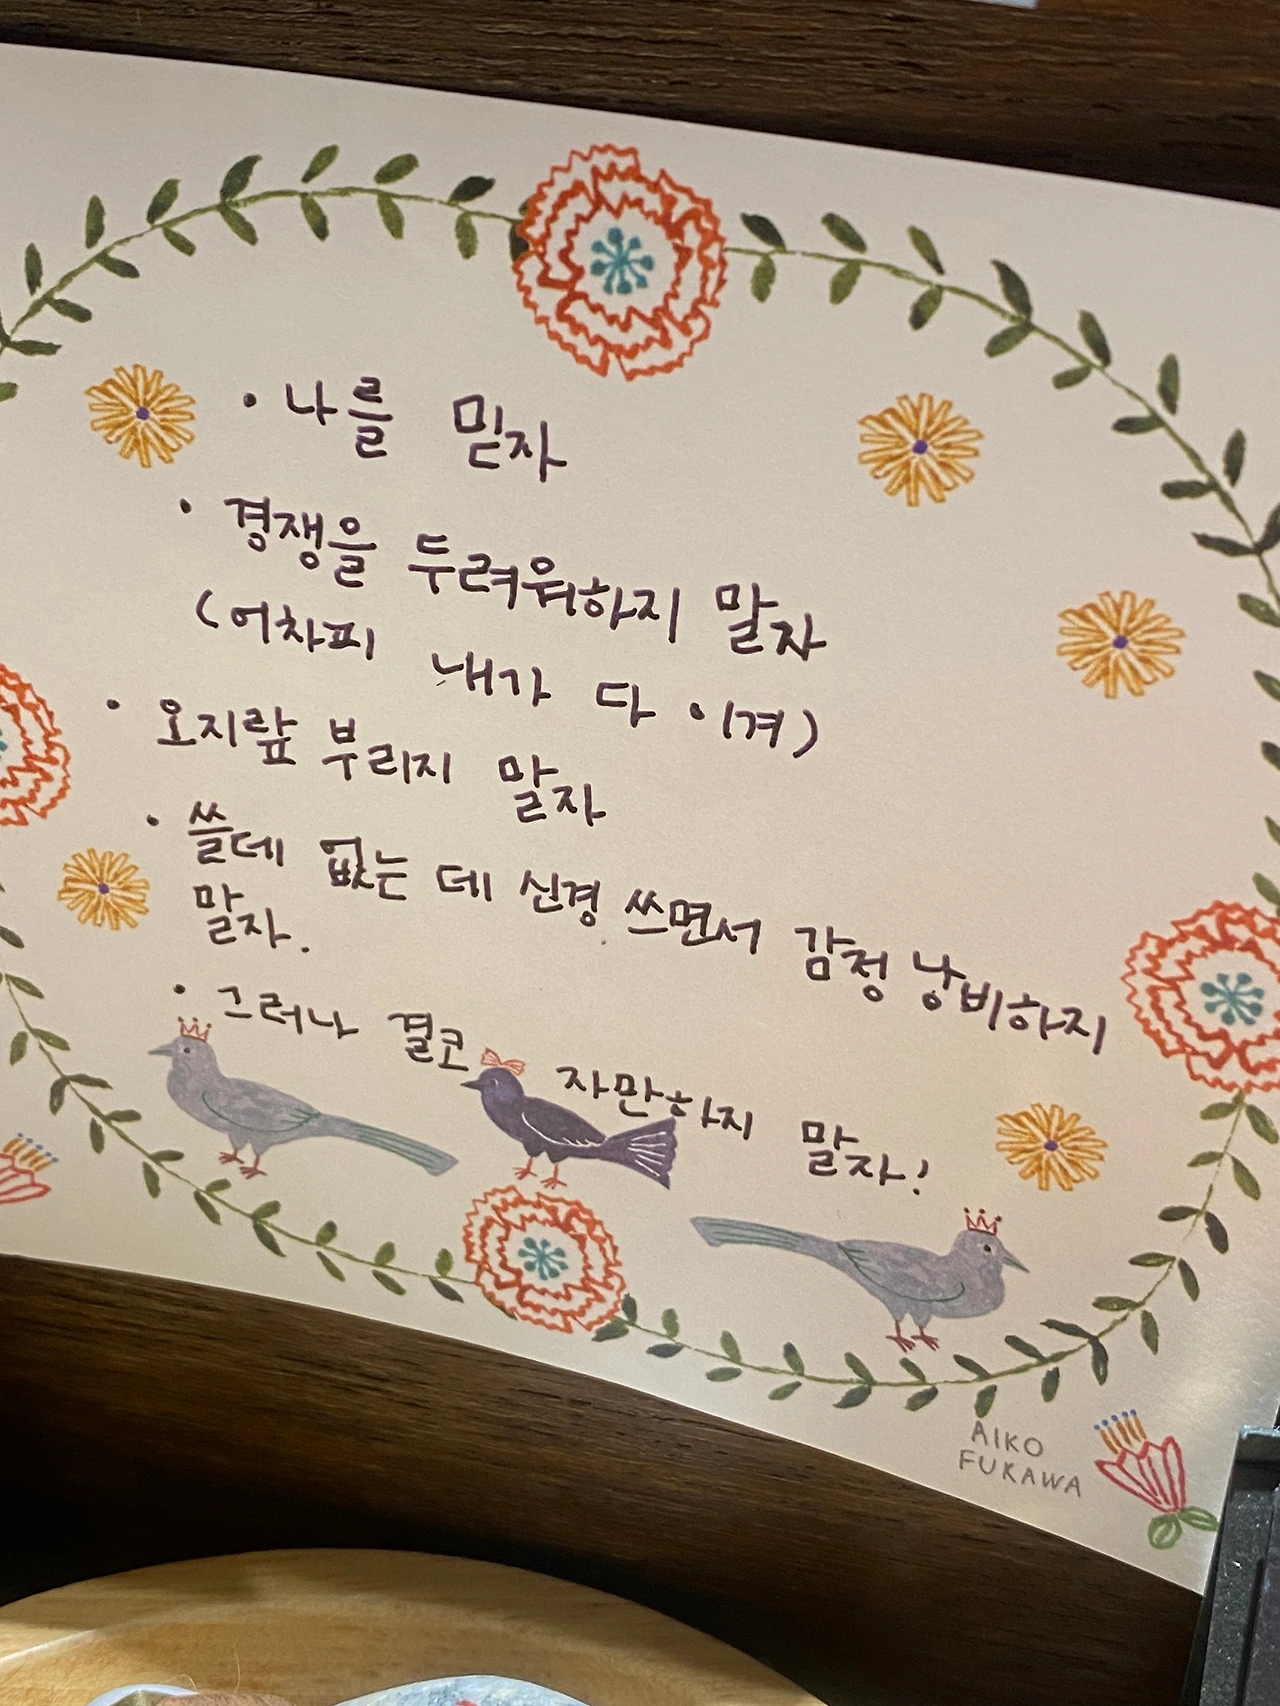 · 나를 믿자
· 경쟁을 두려워하지 말자
(어차피 내가 다 이겨)
· 오지랖 부리지 말자
· 쓸데 없는 데 신경 쓰면서 감정 낭비하지
말자.
· 그러나 결코 자만하지 말자!
AIKO
FUKAWA